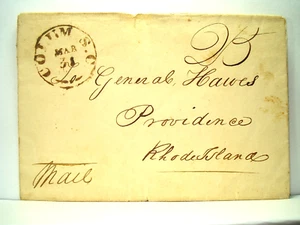 COLUM. S.C.
MAR
31
25
To
General Hawes
Providence
Rhode Island
Mail